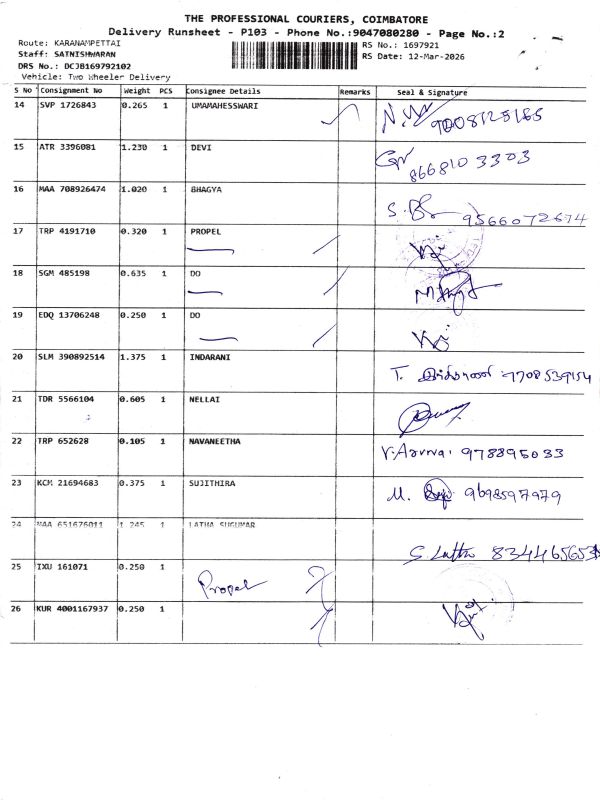 THE PROFESSIONAL COURIERS, COIMBATORE
Delivery Runsheet - P103 - Phone No.:9047080280 - Page No.:2
Route: KARANAMPETTAI
Staff: SATNISHWARAN
DRS No.: DCJB169792102
Vehicle: Two Wheeler Delivery
RS No.: 1697921
RS Date: 12-Mar-2026
S No Consignment No Weight PCS Consignee Details Remarks Seal & Signature
14 SVP 1726843 0.265 1 UMAMAHESSWARI
15 ATR 3396081 1.230 1 DEVI 8668103303
16 MAA 708926474 1.020 1 BHAGYA S. 9566072674
17 TRP 4191710 0.320 1 PROPEL
18 SGM 485198 0.635 1 DO
19 EDQ 13706248 0.250 1 DO
20 SLM 390892514 1.375 1 INDARANI T. 9708539154
21 TDR 5566104 0.605 1 NELLAI
22 TRP 652628 0.105 1 NAVANEETHA V. Aruna: 978895033
23 KCM 21694683 0.375 1 SUJITHIRA M. 9698597979
24 MAA 651676011 1.245 1 LATHA SUGUMAR S. Latha
25 IXU 161071 0.250 1 Propel
26 KUR 4001167937 0.250 1